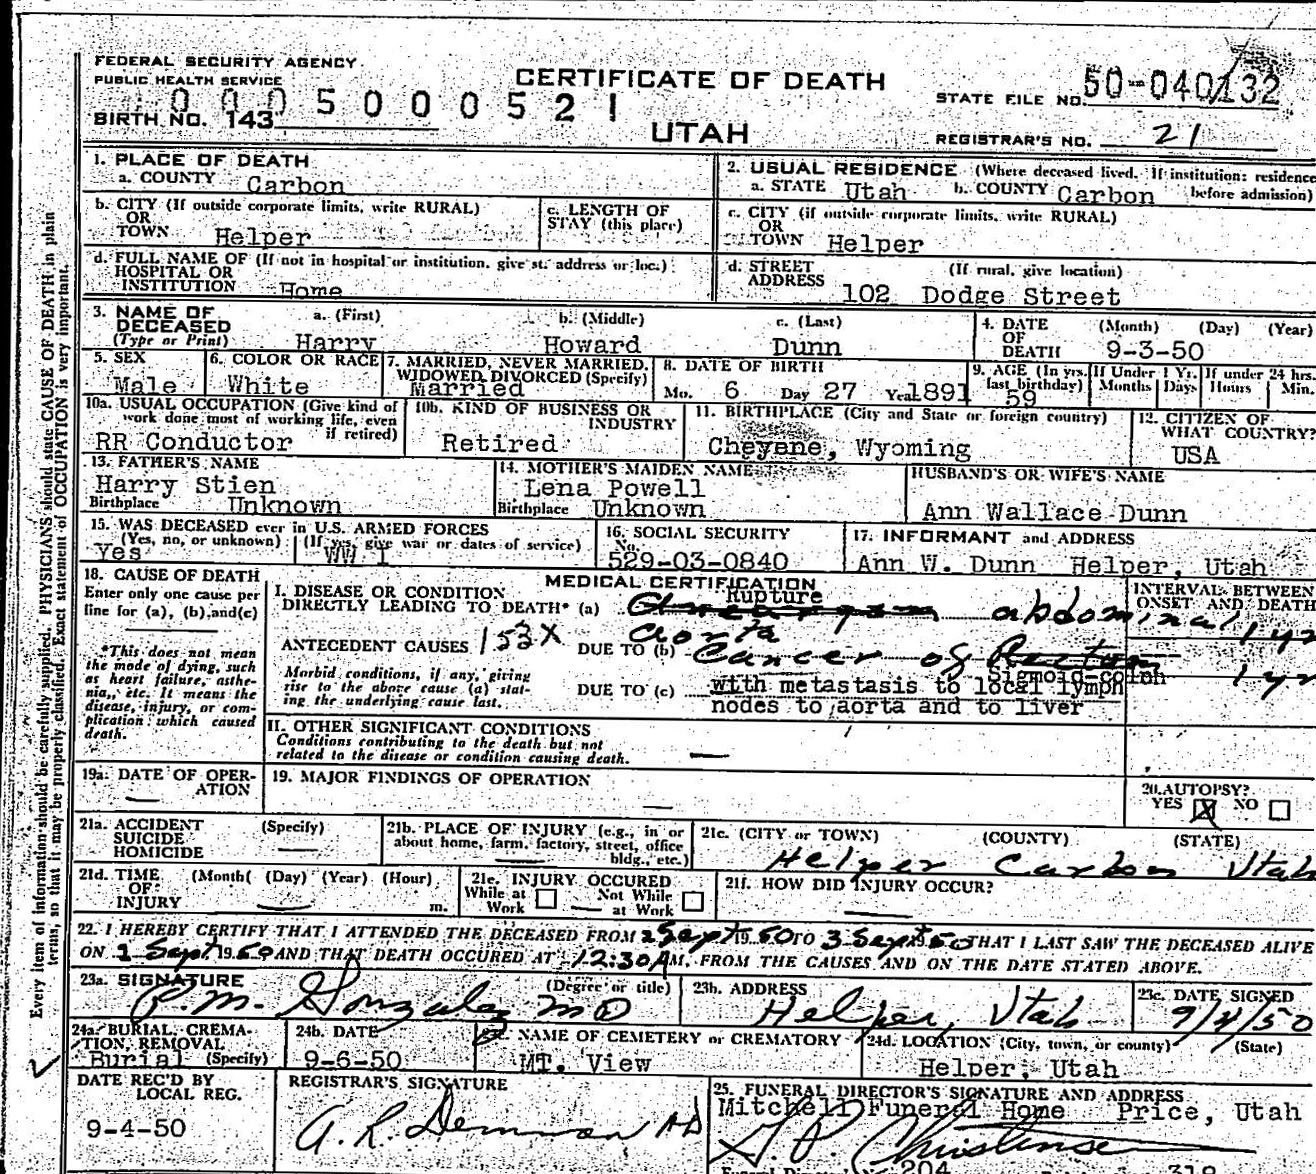 FEDERAL SECURITY AGENCY
PUBLIC HEALTH SERVICE
CERTIFICATE OF DEATH
50-040132
STATE FILE NO.
0005000521
BIRTH NO. 143
UTAH
REGISTRAR'S NO. 21
1. PLACE OF DEATH
a. COUNTY Carbon
2. USUAL RESIDENCE (Where deceased lived. If institution: residence before admission)
a. STATE Utah b. COUNTY Carbon
b. CITY (If outside corporate limits, write RURAL) OR TOWN Helper
c. LENGTH OF STAY (this place)
c. CITY (if outside corporate limits, write RURAL) OR TOWN Helper
d. FULL NAME OF (If not in hospital or institution, give st. address or loc.) HOSPITAL OR INSTITUTION Home
d. STREET ADDRESS (If rural, give location)
102 Dodge Street
3. NAME OF DECEASED (Type or Print)
a. (First) b. (Middle) c. (Last)
Harry Howard Dunn
4. DATE OF DEATH (Month) (Day) (Year)
9-3-50
5. SEX Male
6. COLOR OR RACE White
7. MARRIED, NEVER MARRIED, WIDOWED DIVORCED (Specify) Married
8. DATE OF BIRTH
Mo. 6 Day 27 Year 1891
9. AGE (In yrs. last birthday) 59
If Under 1 Yr. Months Days
If under 24 hrs. Hours Min.
10a. USUAL OCCUPATION (Give kind of work done most of working life, even if retired)
RR Conductor
10b. KIND OF BUSINESS OR INDUSTRY
Retired
11. BIRTHPLACE (City and State or foreign country)
Cheyene, Wyoming
12. CITIZEN OF WHAT COUNTRY?
USA
13. FATHER'S NAME
Harry Stien
Birthplace Unknown
14. MOTHER'S MAIDEN NAME
Lena Powell
Birthplace Unknown
HUSBAND'S OR WIFE'S NAME
Ann Wallace Dunn
15. WAS DECEASED ever in U.S. ARMED FORCES
(Yes, no, or unknown) (If yes, give war or dates of service)
Yes WW 1
16. SOCIAL SECURITY No.
529-03-0840
17. INFORMANT and ADDRESS
Ann W. Dunn Helper, Utah
18. CAUSE OF DEATH
Enter only one cause per line for (a), (b), and (c)
*This does not mean the mode of dying, such as heart failure, asthenia, etc. It means the disease, injury, or complication which caused death.
MEDICAL CERTIFICATION
I. DISEASE OR CONDITION DIRECTLY LEADING TO DEATH* (a) Rupture abdominal aorta
INTERVAL BETWEEN ONSET AND DEATH
1 yr
ANTECEDENT CAUSES 153X
DUE TO (b) Cancer of Rectum
Sigmoid-colph
1 yr
Morbid conditions, if any, giving rise to the above cause (a) stating the underlying cause last.
DUE TO (c) with metastasis to local lymph
nodes to aorta and to liver
II. OTHER SIGNIFICANT CONDITIONS
Conditions contributing to the death but not related to the disease or condition causing death.
19a. DATE OF OPERATION
19. MAJOR FINDINGS OF OPERATION
20. AUTOPSY?
YES X NO
21a. ACCIDENT SUICIDE HOMICIDE (Specify)
21b. PLACE OF INJURY (e.g., in or about home, farm, factory, street, office bldg., etc.)
21c. (CITY or TOWN) (COUNTY) (STATE)
Helper Carbon Utah
21d. TIME OF INJURY (Month) (Day) (Year) (Hour) m.
21e. INJURY OCCURED
While at Work Not While at Work
21f. HOW DID INJURY OCCUR?
22. I HEREBY CERTIFY THAT I ATTENDED THE DECEASED FROM 2 Sept 19 50 TO 3 Sept 19 50 THAT I LAST SAW THE DECEASED ALIVE
ON 2 Sept 19 50 AND THAT DEATH OCCURED AT 12:30 A M. FROM THE CAUSES AND ON THE DATE STATED ABOVE.
23a. SIGNATURE (Degree or title)
Gonzalez MD
23b. ADDRESS
Helper, Utah
23c. DATE SIGNED
9/4/50
24a. BURIAL, CREMATION, REMOVAL (Specify)
Burial
24b. DATE
9-6-50
NAME OF CEMETERY or CREMATORY
MT. View
24d. LOCATION (City, town, or county) (State)
Helper, Utah
DATE REC'D BY LOCAL REG.
9-4-50
REGISTRAR'S SIGNATURE
25. FUNERAL DIRECTOR'S SIGNATURE AND ADDRESS
Mitchell Funeral Home Price, Utah
204 318
Every item of information should be carefully supplied. PHYSICIANS should state CAUSE OF DEATH in plain
terms, so that it may be properly classified. Exact statement of OCCUPATION is very important.